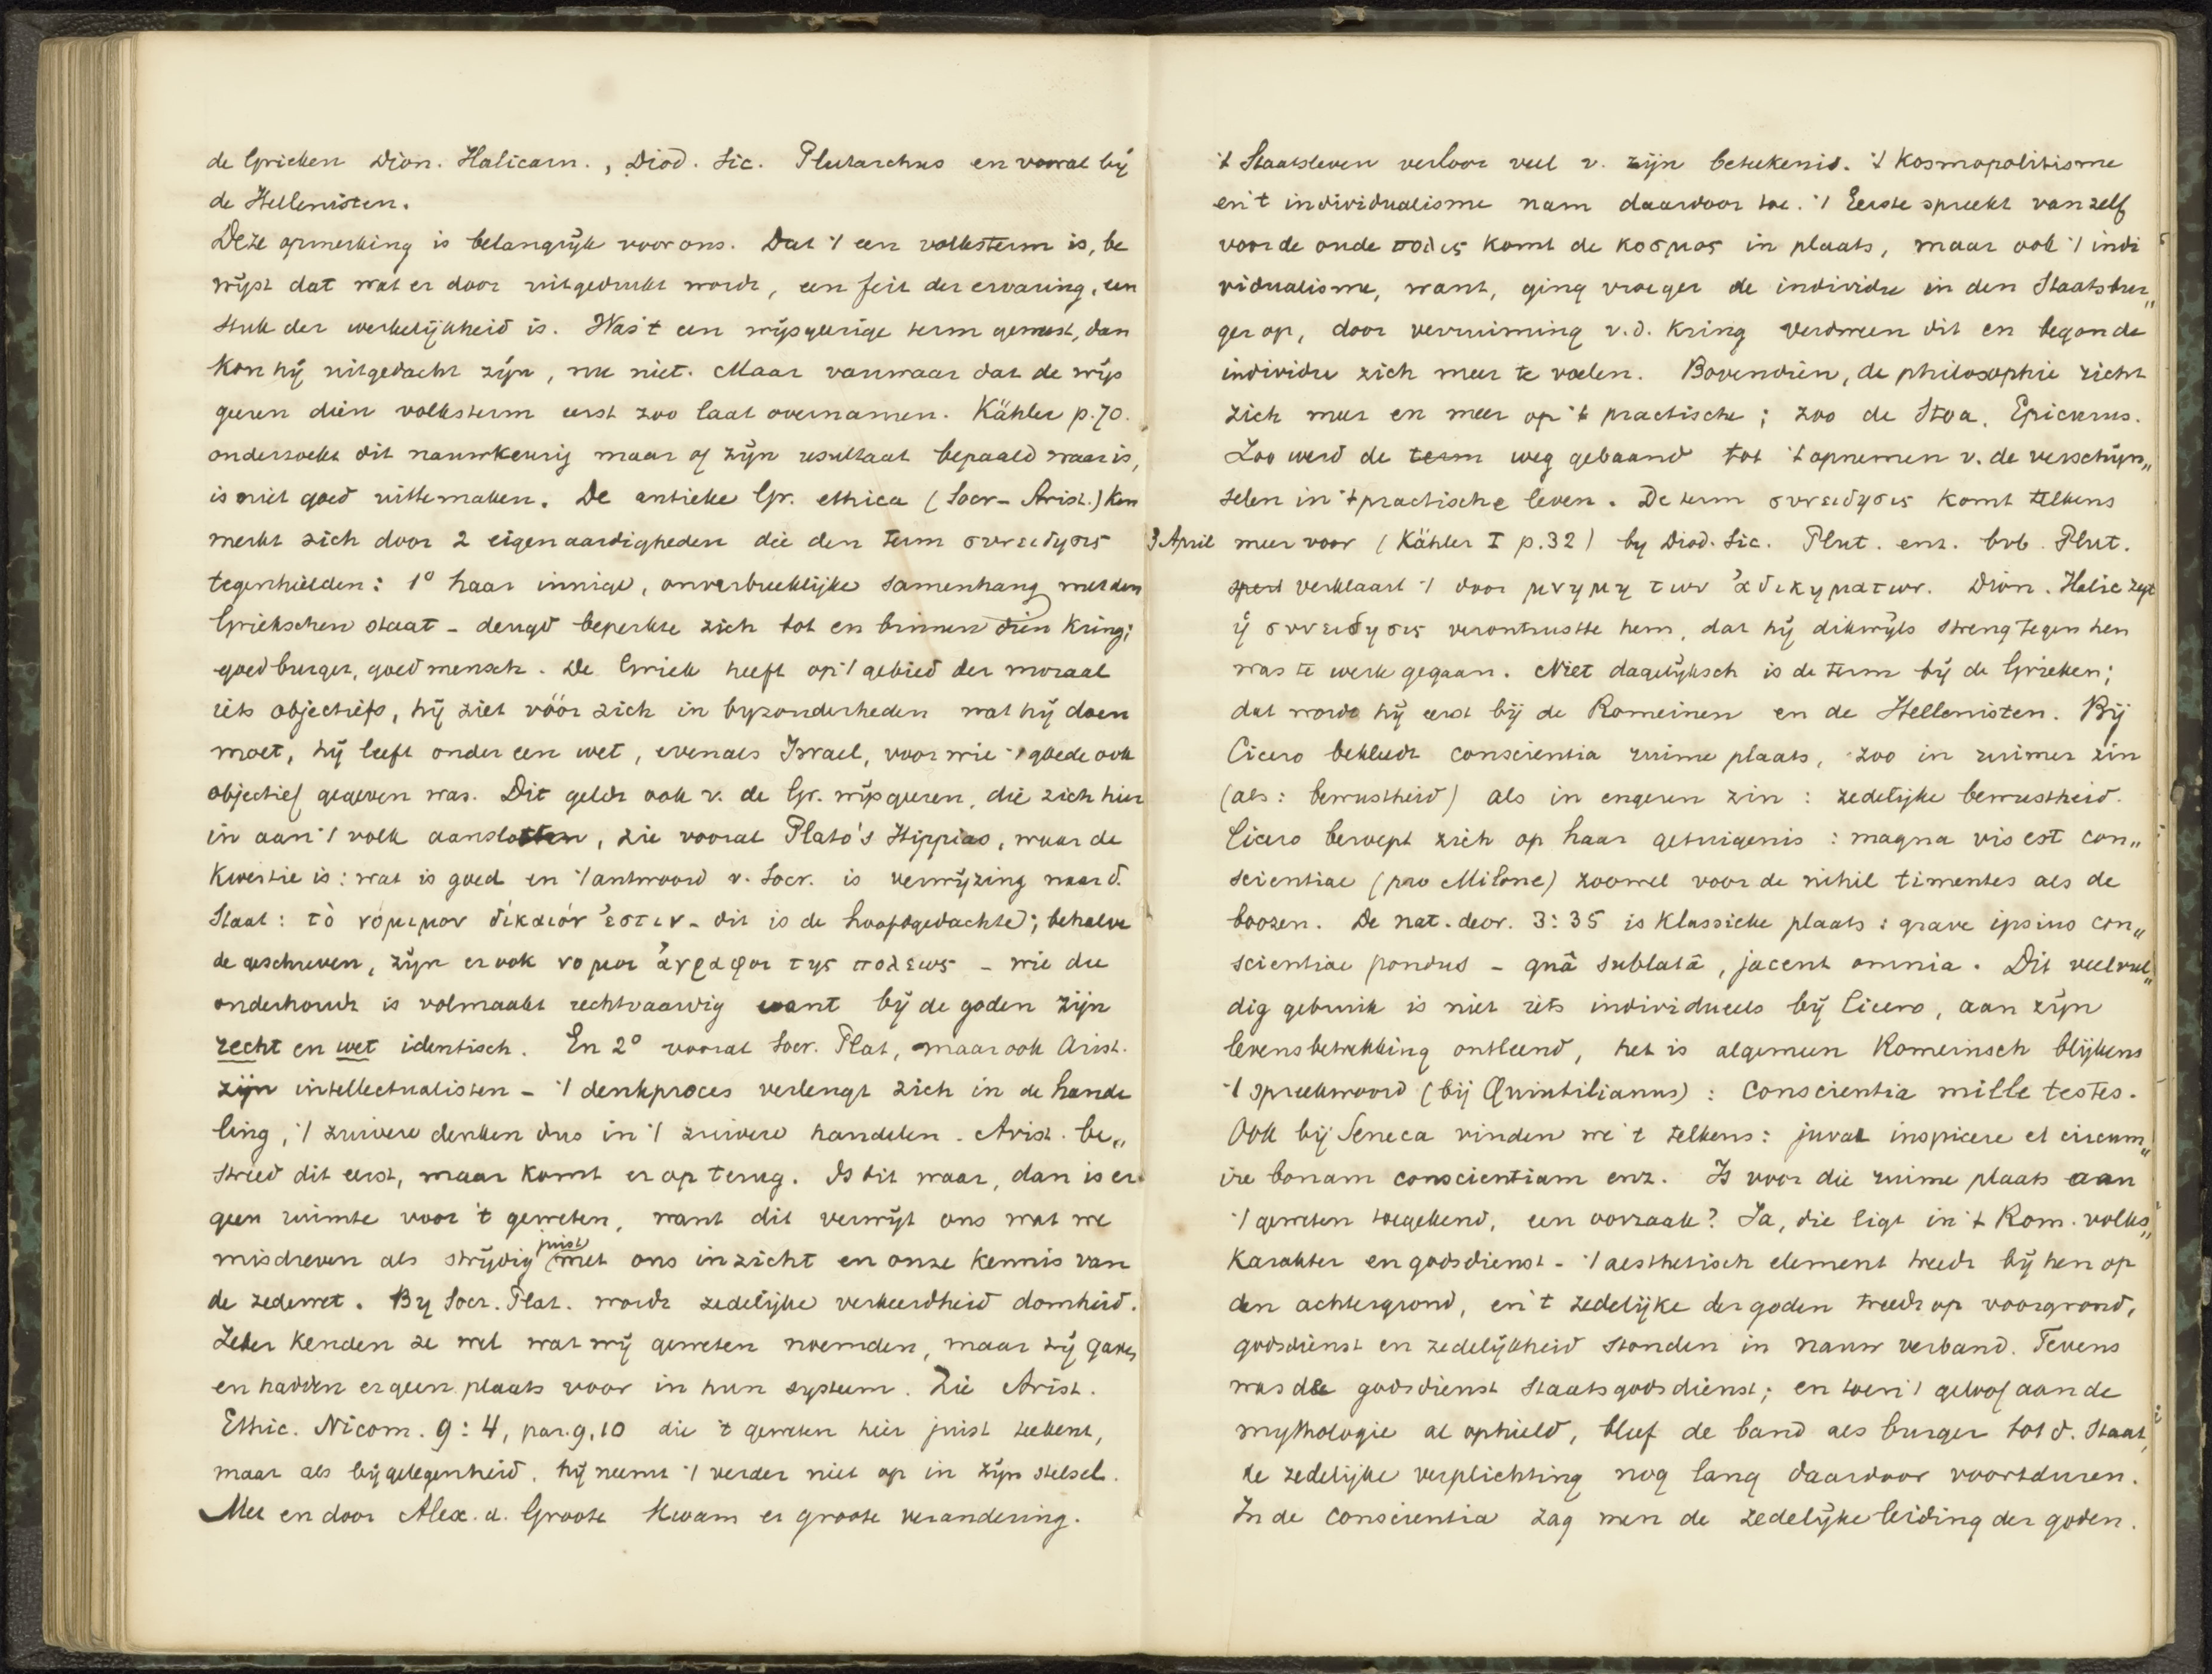 de Grieken Dion. Halicarn., Diod. Sic. Plutarchus en vooral bij
de Hellenisten.
Deze opmerking is belangrijk voor ons. Dat 't een volksterm is, be
wijst dat wat er door uitgedrukt wordt, een feit der ervaring, een
stuk der werkelijkheid is. Was 't een wijsgeerige term geweest, dan
kon hij uitgedacht zijn, nu niet. Maar vanwaar dat de wijs
geren dien volksterm eerst zoo laat overnamen. Kähler p. 70.
onderzoekt dit nauwkeurig maar of zijn resultaat bepaald waar is,
is niet goed uittemaken. De antieke Gr. ethica (Socr - Arist.) ken
merkt zich door 2 eigenaardigheden die den term συνειδησις
tegenhielden: 1° haar innige, onverbreeklijke samenhang met den
Griekschen staat - deugd beperkte zich tot en binnen dien kring;
goed burger, goed mensch. De Griek heeft op 't gebied der moraal
iets objectiefs, hij ziet vóór zich in byzonderheden wat hij doen
moet, hij leeft onder een wet, evenals Israel, voor wie 't goede ook
objectief gegeven was. Dit geldt ook v. de Gr. wijsgeren, die zich hier
in aan 't volk aansloten, zie vooral Plato's Hippias, waar de
kwestie is: wat is goed en 't antwoord v. Socr. is verwijzing naar d.
Staat: τὸ νόμιμον δίκαιόν ἐστιν - dit is de hoofdgedachte; behalve
de geschreven, zijn er ook νομοι ἀγραφοι της πολεως - wie die
onderhoudt is volmaakt rechtvaardig want bij de goden zijn
recht en wet identisch. En 2° vooral Socr. Plat, maar ook Arist.
zijn intellectualisten - 't denkproces verlengt zich in de hande
ling, 't zuivere denken dus in 't zuivere handelen. Arist. be„
streed dit eerst, maar komt er op terug. Is dit waar, dan is er
geen ruimte voor 't geweten, want dit verwijt ons wat we
misdreven als strijdig juist met ons inzicht en onze kennis van
de zedewet. By Socr. Plat. wordt zedelijke verkeerdheid domheid.
Zeker kenden ze wel wat wij geweten noemden, maar zij gaven
en hadden er geen plaats voor in hun systeem. Zie Arist.
Ethic. Nicom. 9:4, par. 9, 10 die 't geweten hier juist teekent,
maar als bij gelegenheid, hij neemt 't verder niet op in zijn stelsel.
Met en door Alex. d. Groote kwam er groote verandering.
't Staatsleven verloor veel v. zijn beteekenis. 't Kosmopolitisme
en 't individualisme nam daardoor toe. 't Eerste spreekt vanzelf
voor de oude πολις komt de κοσμος in plaats, maar ook 't indi
vidualisme, want, ging vroeger de individu in den Staatsbur„
ger op, door verruiming v.d. kring verdween dit en begon de
individu zich meer te voelen. Bovendien, de philosophie richt
zich meer en meer op 't practische; zoo de Stoa, Epicurus.
Zoo werd de term weg gebaand tot 't opnemen v. de verschijn„
selen in 't practische leven. De term συνειδησις komt telkens
3 April meer voor (Kähler I p. 32) by Diod. Sic. Plut. enz. bvb. Plut.
verklaart 't door μνημη των ἀδικηματων. Dion. Halic zegt
ἡ συνειδησις verontrustte hem, dat hij dikwijls streng tegen hen
was te werk gegaan. Niet dagelijksch is de term bij de Grieken;
dat wordt hij eerst bij de Romeinen en de Hellenisten. Bij
Cicero bekleedt conscientia ruime plaats, zoo in ruimer zin
(als: bewustheid) als in engeren zin: zedelijke bewustheid.
Cicero beroept zich op haar getuigenis: magna vis est con„
scientiae (pro Milone) zoowel voor de nihil timentes als de
boozen. De nat. deor. 3:35 is klassieke plaats: grave ipsius con„
scientiae pondus - quâ sublatâ, jacent omnia. Dit veelvul„
dig gebruik is niet iets individueels bij Cicero, aan zijn
levensbetrekking ontleend, het is algemeen Romeinsch blijkens
't spreekwoord (bij Quintilianus): Conscientia mille testes.
Ook bij Seneca vinden we 't telkens: juvat inspicere et circum„
ire bonam conscientiam enz. Is voor die ruime plaats aan
't geweten toegekend, een oorzaak? Ja, die ligt in 't Rom. volks„
karakter en godsdienst - 't aesthetisch element treedt bij hen op
den achtergrond, en 't zedelijke der goden treedt op voorgrond,
godsdienst en zedelijkheid stonden in nauw verband. Tevens
was de godsdienst Staatsgodsdienst; en toen 't geloof aan de
mythologie al ophield, bleef de band als burger tot d. Staat,
de zedelijke verplichting nog lang daardoor voortduren.
In de conscientia zag men de zedelijke leiding der goden.